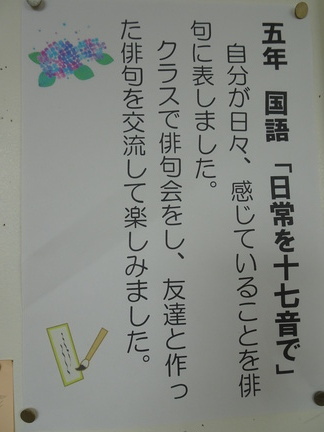 五年 国語 「日常を十七音で」
自分が日々、感じていることを俳
句に表しました。
クラスで俳句会をし、友達と作っ
た俳句を交流して楽しみました。